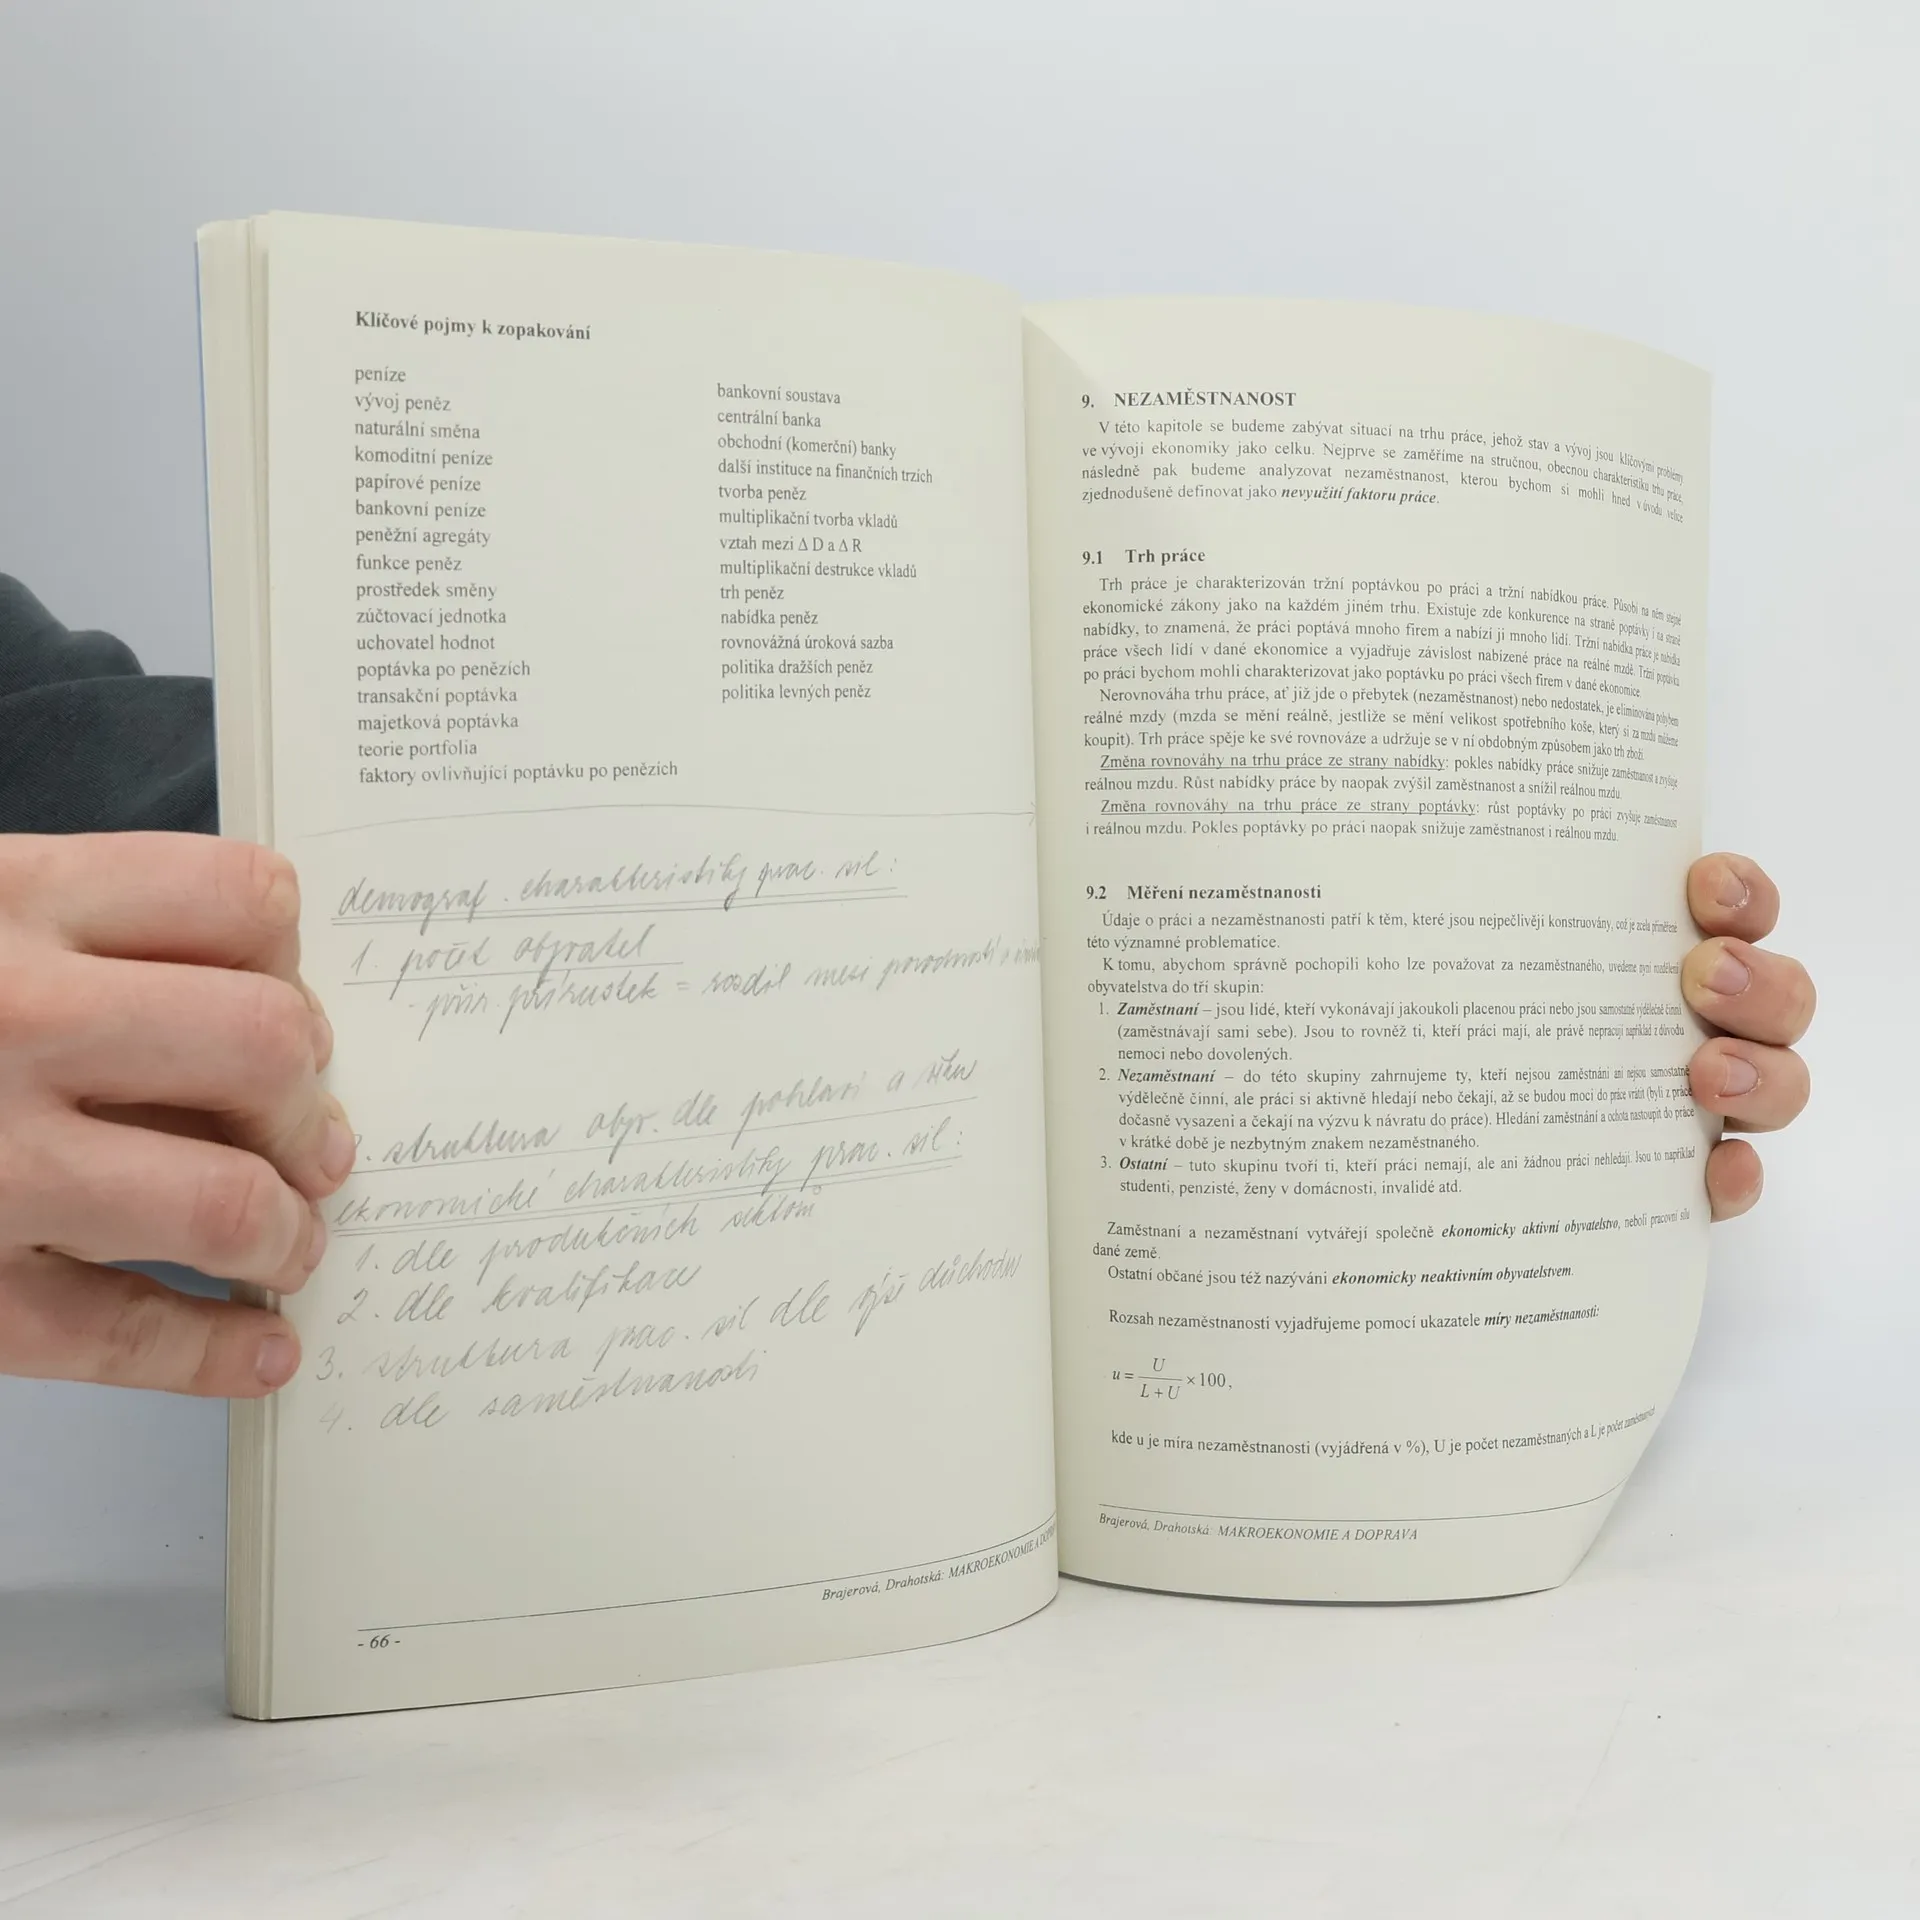 Klíčové pojmy k zopakování
peníze
vývoj peněz
naturální směna
komoditní peníze
papírové peníze
bankovní peníze
peněžní agregáty
funkce peněz
prostředek směny
zúčtovací jednotka
uchovatel hodnot
poptávka po penězích
transakční poptávka
majetková poptávka
teorie portfolia
faktory ovlivňující poptávku po penězích
bankovní soustava
centrální banka
obchodní (komerční) banky
další instituce na finančních trzích
tvorba peněz
multiplikační tvorba vkladů
vztah mezi Δ D a Δ R
multiplikační destrukce vkladů
trh peněz
nabídka peněz
rovnovážná úroková sazba
politika dražších peněz
politika levných peněz
demograf. charakteristiky prac. sil:
1. počet obyvatel
- přir. přírustek = rozdíl mezi porodností a
. struktura obyv. dle pohlaví a věku
ekonomické charakteristiky prac. sil:
1. dle produkčních sektorů
2. dle kvalifikace
3. struktura prac. sil dle výše důchodu
4. dle zaměstnanosti
Brajerová, Drahotská: MAKROEKONOMIE A
- 66 -
9. NEZAMĚSTNANOST
V této kapitole se budeme zabývat situací na trhu práce, jehož stav a vývoj jsou klíčovými problémy
ve vývoji ekonomiky jako celku. Nejprve se zaměříme na stručnou, obecnou charakteristiku trhu práce,
následně pak budeme analyzovat nezaměstnanost, kterou bychom si mohli hned v úvodu velice
zjednodušeně definovat jako nevyužití faktoru práce.
9.1 Trh práce
Trh práce je charakterizován tržní poptávkou po práci a tržní nabídkou práce. Působí na něm stejné
ekonomické zákony jako na každém jiném trhu. Existuje zde konkurence na straně poptávky i na straně
nabídky, to znamená, že práci poptává mnoho firem a nabízí ji mnoho lidí. Tržní nabídka práce je nabídka
práce všech lidí v dané ekonomice a vyjadřuje závislost nabízené práce na reálné mzdě. Tržní poptávka
po práci bychom mohli charakterizovat jako poptávku po práci všech firem v dané ekonomice.
Nerovnováha trhu práce, ať již jde o přebytek (nezaměstnanost) nebo nedostatek, je eliminována pohybem
reálné mzdy (mzda se mění reálně, jestliže se mění velikost spotřebního koše, který si za mzdu můžeme
koupit). Trh práce spěje ke své rovnováze a udržuje se v ní obdobným způsobem jako trh zboží.
Změna rovnováhy na trhu práce ze strany nabídky: pokles nabídky práce snižuje zaměstnanost a zvyšuje
reálnou mzdu. Růst nabídky práce by naopak zvýšil zaměstnanost a snížil reálnou mzdu.
Změna rovnováhy na trhu práce ze strany poptávky: růst poptávky po práci zvyšuje zaměstnanost
i reálnou mzdu. Pokles poptávky po práci naopak snižuje zaměstnanost i reálnou mzdu.
9.2 Měření nezaměstnanosti
Údaje o práci a nezaměstnanosti patří k těm, které jsou nejpečlivěji konstruovány, což je zcela přiměřené
této významné problematice.
K tomu, abychom správně pochopili koho lze považovat za nezaměstnaného, uvedeme nyní rozdělení
obyvatelstva do tří skupin:
1. Zaměstnaní – jsou lidé, kteří vykonávají jakoukoli placenou práci nebo jsou samostatně výdělečně činní
(zaměstnávají sami sebe). Jsou to rovněž ti, kteří práci mají, ale právě nepracují například z důvodu
nemoci nebo dovolených.
2. Nezaměstnaní – do této skupiny zahrnujeme ty, kteří nejsou zaměstnáni ani nejsou samostatně
výdělečně činní, ale práci si aktivně hledají nebo čekají, až se budou moci do práce vrátit (byli z práce
dočasně vysazeni a čekají na výzvu k návratu do práce). Hledání zaměstnání a ochota nastoupit do práce
v krátké době je nezbytným znakem nezaměstnaného.
3. Ostatní – tuto skupinu tvoří ti, kteří práci nemají, ale ani žádnou práci nehledají. Jsou to například
studenti, penzisté, ženy v domácnosti, invalidé atd.
Zaměstnaní a nezaměstnaní vytvářejí společně ekonomicky aktivní obyvatelstvo, neboli pracovní sílu
dané země.
Ostatní občané jsou též nazýváni ekonomicky neaktivním obyvatelstvem.
Rozsah nezaměstnanosti vyjadřujeme pomocí ukazatele míry nezaměstnanosti:
u = U / L + U × 100,
kde u je míra nezaměstnanosti (vyjádřená v %), U je počet nezaměstnaných a L je počet zaměstnaných
Brajerová, Drahotská: MAKROEKONOMIE A DOPRAVA